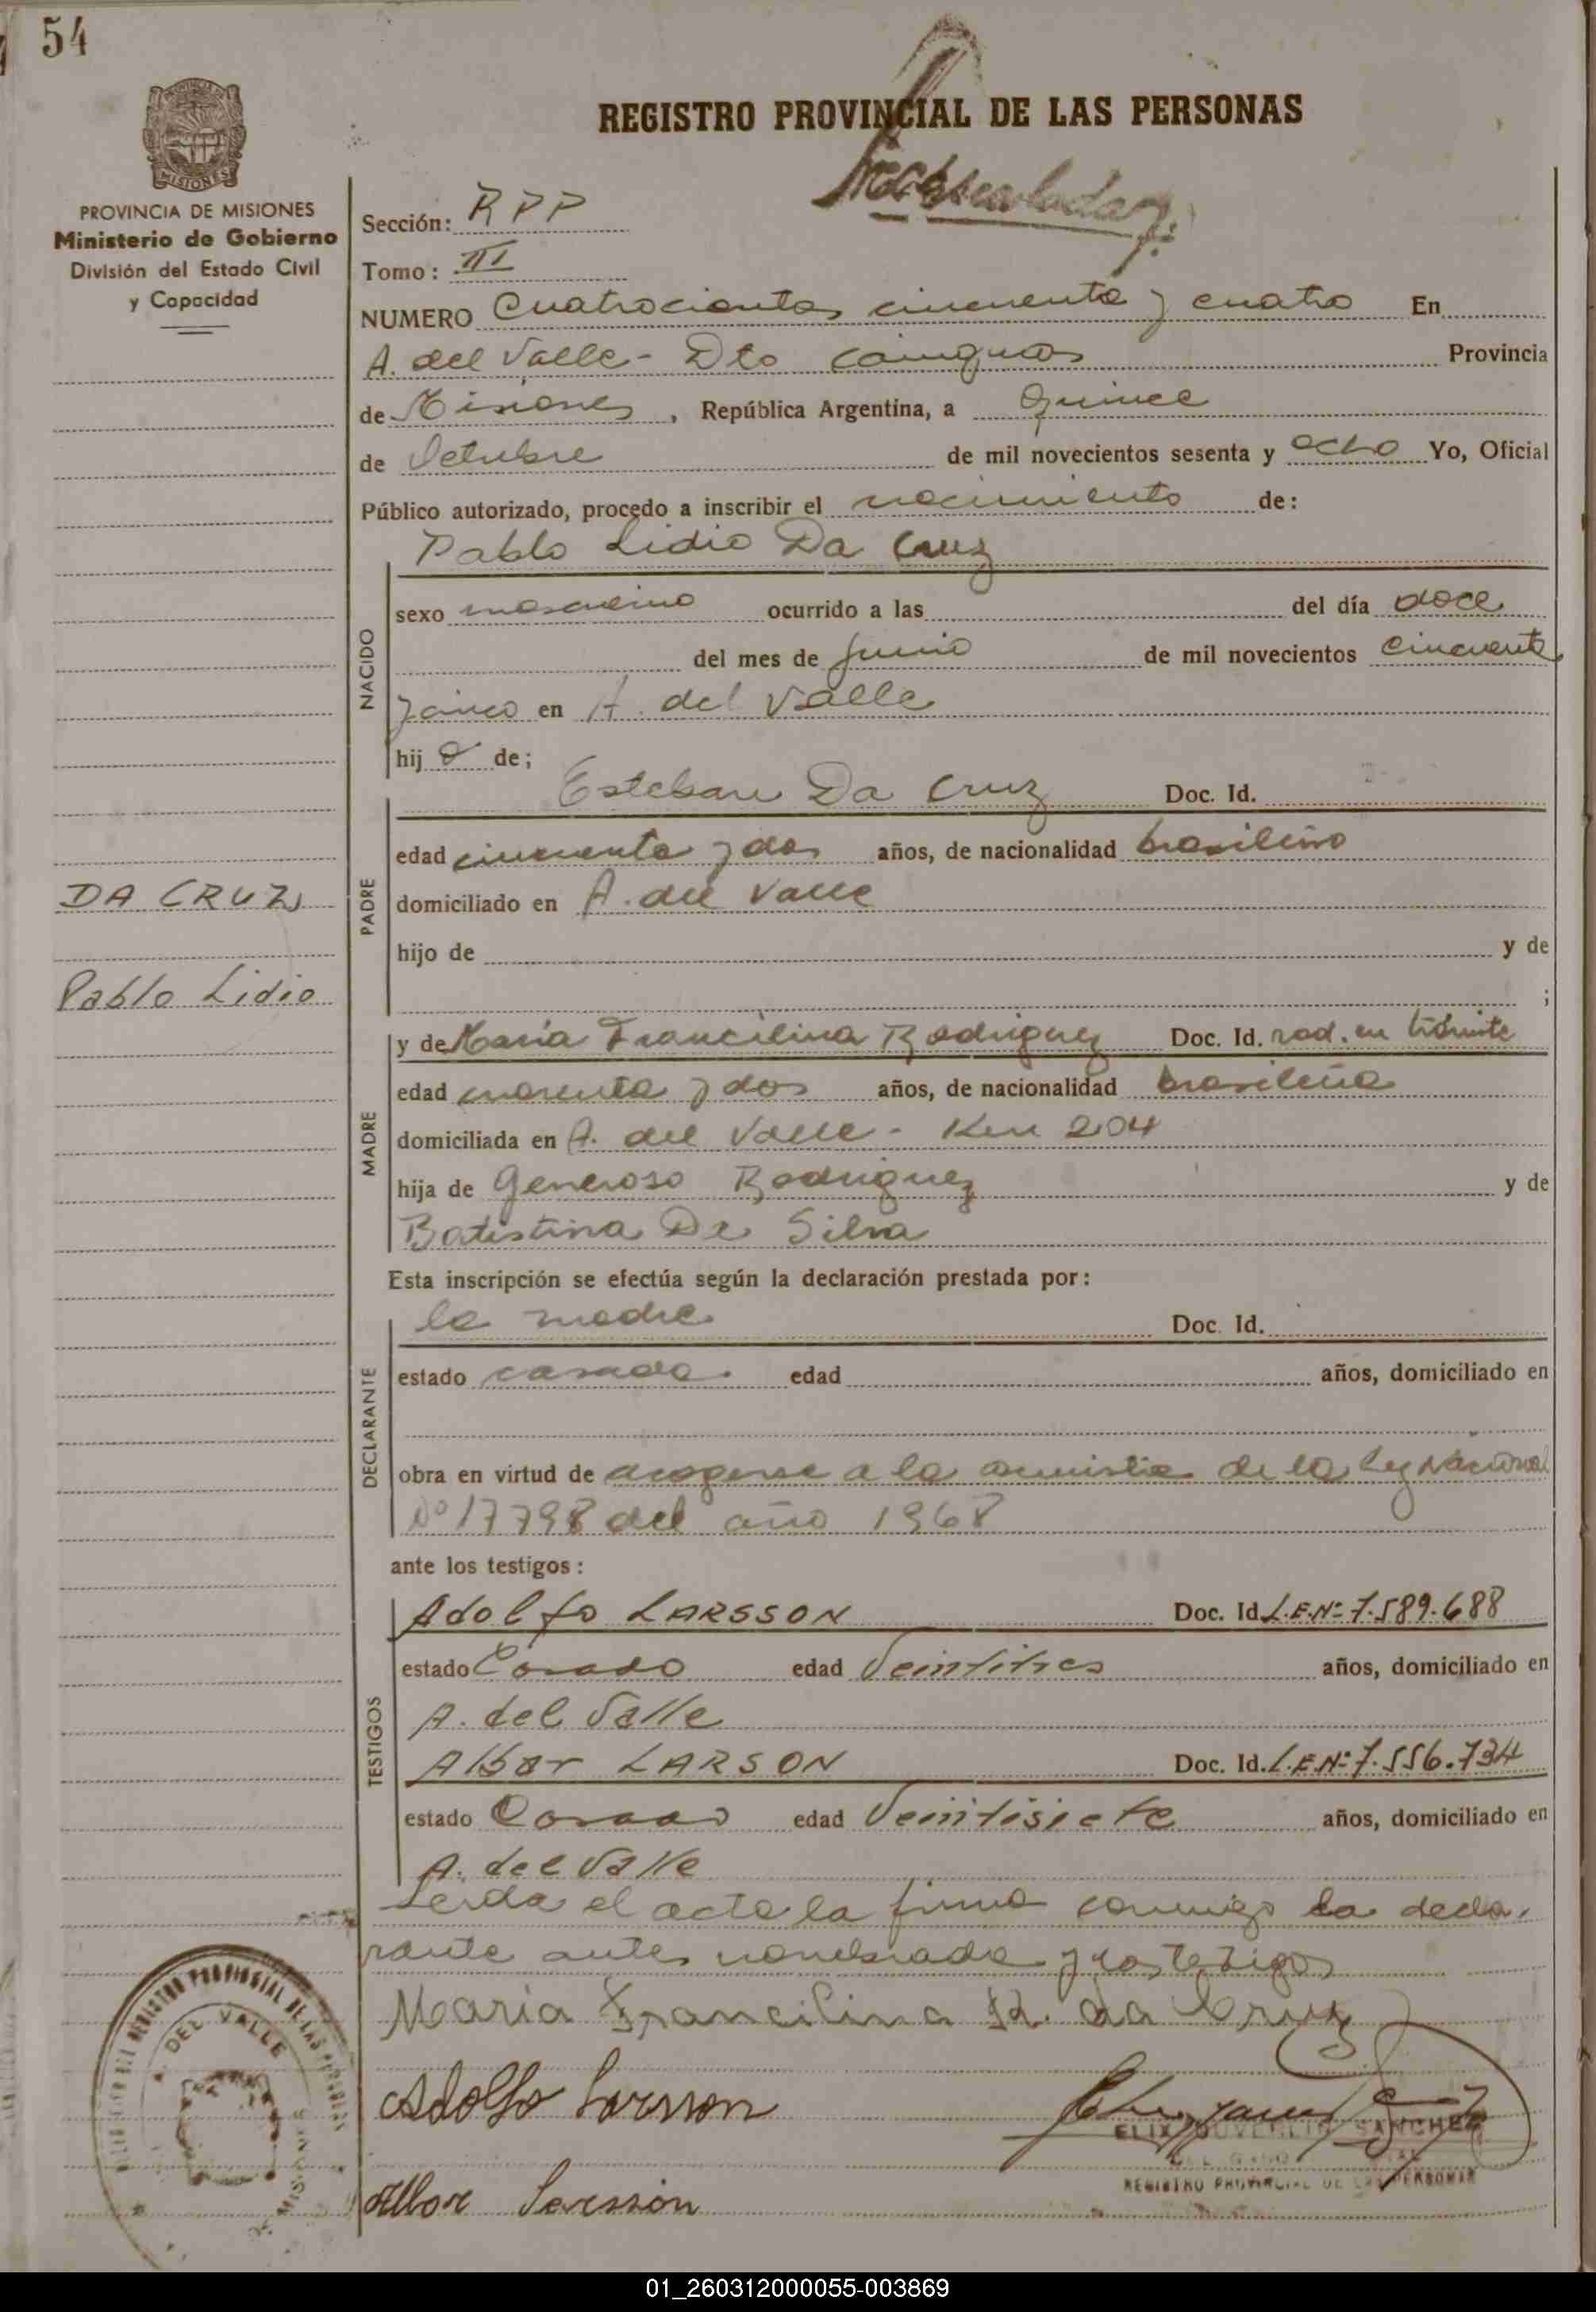 54
REGISTRO PROVINCIAL DE LAS PERSONAS
MISIONES
PROVINCIA DE MISIONES
Ministerio de Gobierno
División del Estado Civil
y Capacidad
Sección: RPP
Tomo: III
NUMERO Cuatrocientos cincuenta y cuatro En
A. del Valle - Dto Cainguas Provincia
de Misiones, República Argentina, a quince
de Octubre de mil novecientos sesenta y ocho Yo, Oficial
Público autorizado, procedo a inscribir el nacimiento de:
Pablo Lidio Da Cruz
NACIDO
sexo masculino ocurrido a las del día doce
del mes de Junio de mil novecientos cincuenta
y cinco en A. del Valle
hij o de;
Esteban Da Cruz Doc. Id.
PADRE
edad cincuenta y dos años, de nacionalidad brasileño
domiciliado en A. del Valle
hijo de y de
;
DA CRUZ
Pablo Lidio
y de María Francilina Rodriguez Doc. Id. rad. en trámite
MADRE
edad cuarenta y dos años, de nacionalidad brasileña
domiciliada en A. del Valle - Km 204
hija de Generoso Rodriguez y de
Batistina De Silva
Esta inscripción se efectúa según la declaración prestada por:
la madre Doc. Id.
DECLARANTE
estado casada. edad años, domiciliado en
obra en virtud de acogerse a la amnistia de la Ley Nacional
Nº 17798 del año 1968
ante los testigos:
TESTIGOS
Adolfo LARSSON Doc. Id. L.E.Nº 7.589.688
estado Casado edad Veintitres años, domiciliado en
A. del Valle
Albor LARSON Doc. Id. L.E.Nº 7.556.734
estado Casado edad Veintisiete años, domiciliado en
A. del Valle
Leida el acta la firma conmigo la decla-
rante antes nombrada y los testigos
María Francilina R. da Cruz
Adolfo Larsson
Albor Larsson
SANCHEZ
REGISTRO PROVINCIAL DE LAS PERSONAS
REGISTRO PROVINCIAL DE LAS PERSONAS
DEL VALLE
MISIONES
01_260312000055-003869